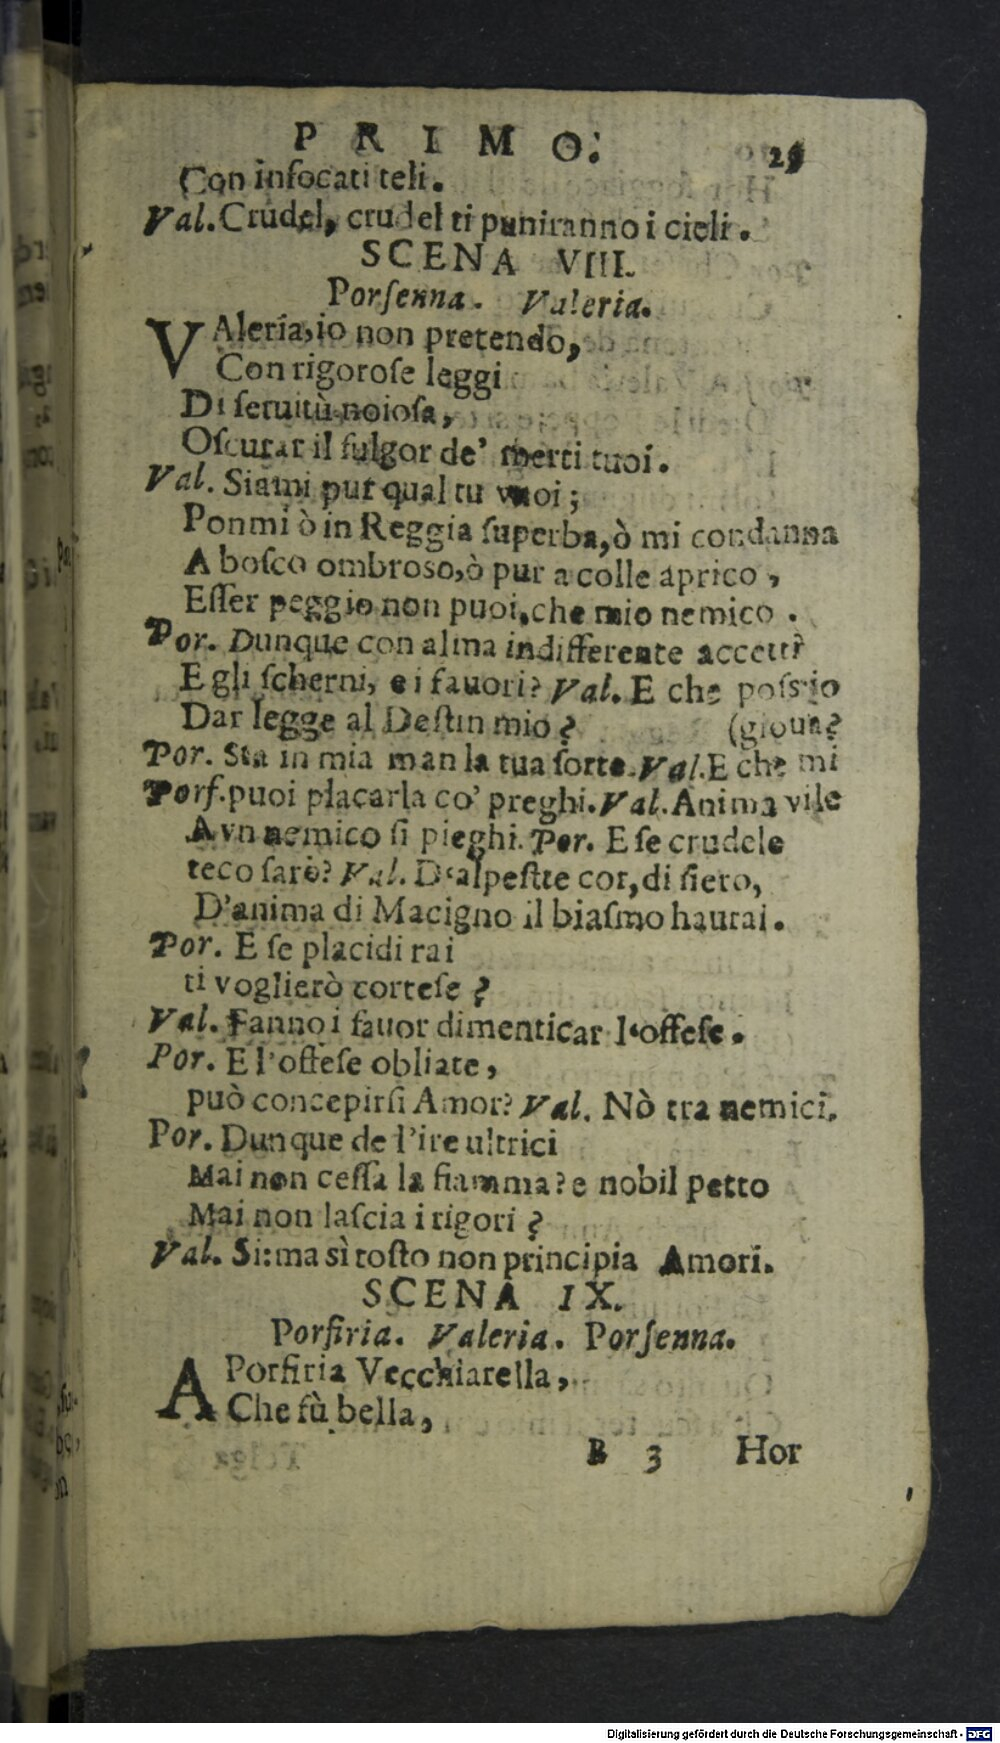 PRIMO. 29
Con infocati teli.
Val. Crudel, crudel ti puniranno i cieli.
SCENA VIII.
Porſenna. Valeria.
VAleria, io non pretendo,
Con rigoroſe leggi
Di ſeruitù noioſa,
Oſcurar il fulgor de' merti tuoi.
Val. Siami pur qual tu vuoi;
Ponmi ò in Reggia ſuperba, ò mi condanna
A boſco ombroso, ò pur a colle aprico,
Eſſer peggio non puoi, che mio nemico.
Por. Dunque con alma indifferente accetti
E gli ſcherni, e i fauori? Val. E che poſs'io
Dar legge al Deſtin mio? (gioua?
Por. Sta in mia man la tua ſorte. Val. E che mi
Porſ. puoi placarla co' preghi. Val. Anima vile
A vn nemico ſi pieghi. Por. E ſe crudele
teco ſarò? Val. D'alpeſtre cor, di fiero,
D'anima di Macigno il biaſmo haurai.
Por. E ſe placidi rai
ti voglierò corteſe?
Val. Fanno i fauor dimenticar l'offeſe.
Por. E l'offeſe obliate,
può concepirſi Amor? Val. Nò tra nemici.
Por. Dunque de l'ire ultrici
Mai non ceſſa la fiamma? e nobil petto
Mai non laſcia i rigori?
Val. Si: ma sì toſto non principia Amori.
SCENA IX.
Porfiria. Valeria. Porſenna.
A Porfiria Vecchiarella,
Che fù bella,
B 3 Hor
Digitalisierung gefördert durch die Deutsche Forschungsgemeinschaft - DFG